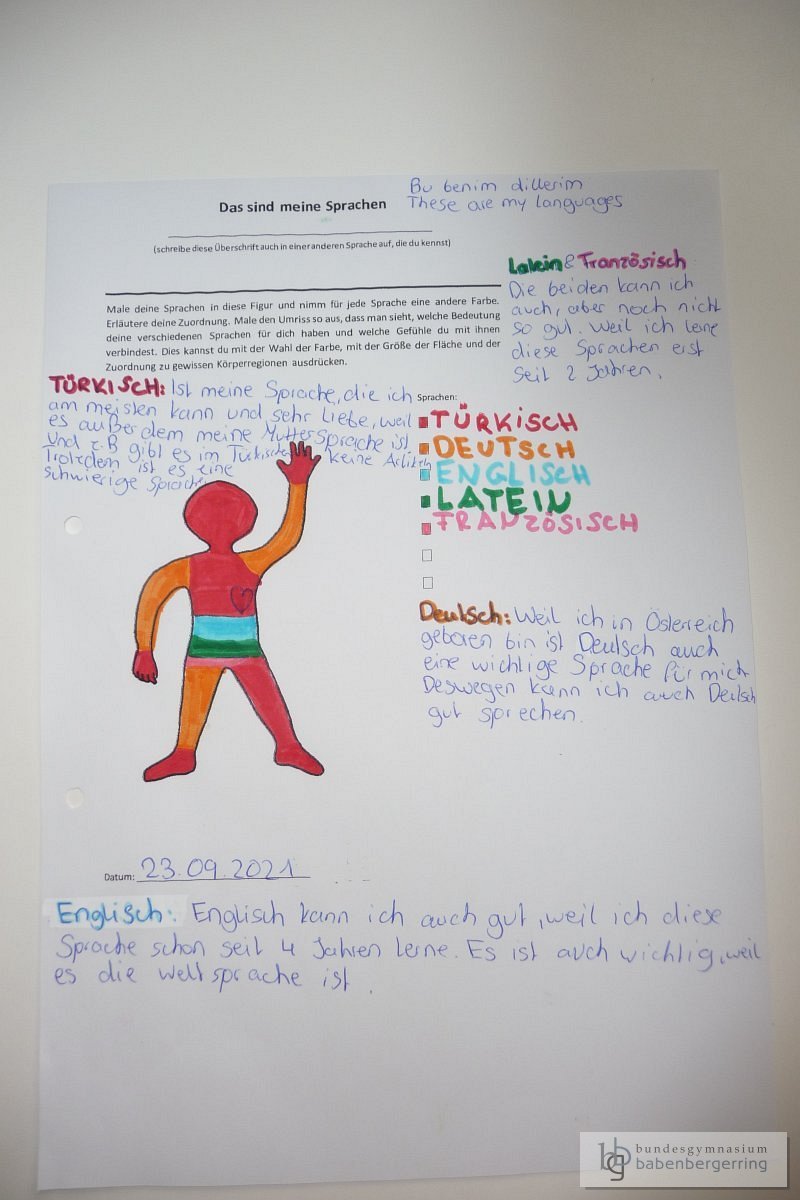 Bu benim dillerim
Das sind meine Sprachen
These are my languages
(schreibe diese Überschrift auch in einer anderen Sprache auf, die du kennst)
Latein & Französisch
Die beiden kann ich
auch, aber noch nicht
so gut. Weil ich lerne
diese Sprachen erst
seit 2 Jahren.
Male deine Sprachen in diese Figur und nimm für jede Sprache eine andere Farbe.
Erläutere deine Zuordnung. Male den Umriss so aus, dass man sieht, welche Bedeutung
deine verschiedenen Sprachen für dich haben und welche Gefühle du mit ihnen
verbindest. Dies kannst du mit der Wahl der Farbe, mit der Größe der Fläche und der
Zuordnung zu gewissen Körperregionen ausdrücken.
TÜRKISCH: Ist meine Sprache, die ich
am meisten kann und sehr Liebe, weil
es außerdem meine Muttersprache ist.
Und z.B gibt es im Türkischen keine Artikeln
Trotzdem ist es eine
schwierige Sprache
Sprachen:
TÜRKISCH
DEUTSCH
ENGLISCH
LATEIN
FRANZÖSISCH
Deutsch: Weil ich in Österreich
geboren bin ist Deutsch auch
eine wichtige Sprache für mich
Deswegen kann ich auch Deutsch
gut sprechen.
Datum: 23.09.2021
Englisch: Englisch kann ich auch gut, weil ich diese
Sprache schon seit 4 Jahren lerne. Es ist auch wichtig, weil
es die weltsprache ist.
bg bundesgymnasium
babenbergerring